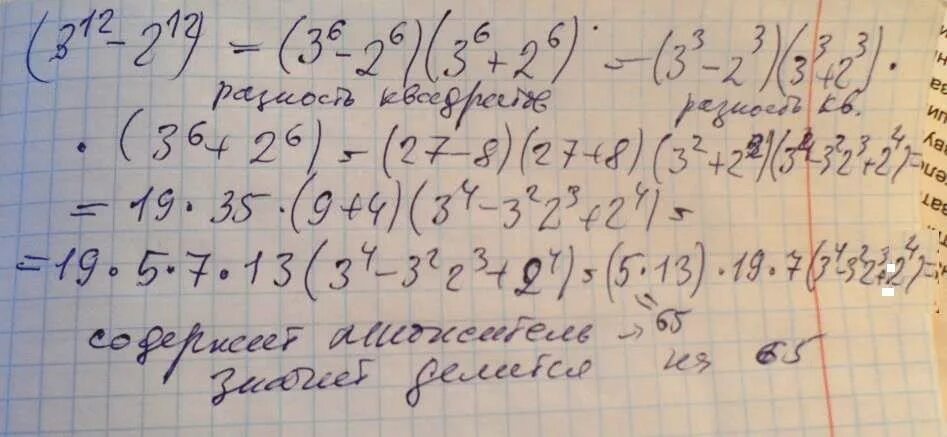 (3¹² - 2¹²) = (3⁶ - 2⁶)(3⁶ + 2⁶) = (3³ - 2³)(3³ + 2³) ·
разность квадратов разность кв.
· (3⁶ + 2⁶) = (27 - 8)(27 + 8)(3² + 2²)(3⁴ - 3²2³ + 2⁴) =
= 19 · 35 · (9 + 4)(3⁴ - 3²2³ + 2⁴) =
= 19 · 5 · 7 · 13 (3⁴ - 3²2³ + 2⁴) = (5 · 13) · 19 · 7 (3⁴ - 3²2³ + 2⁴) =
= 65
содержит множитель →
значит делится на 65